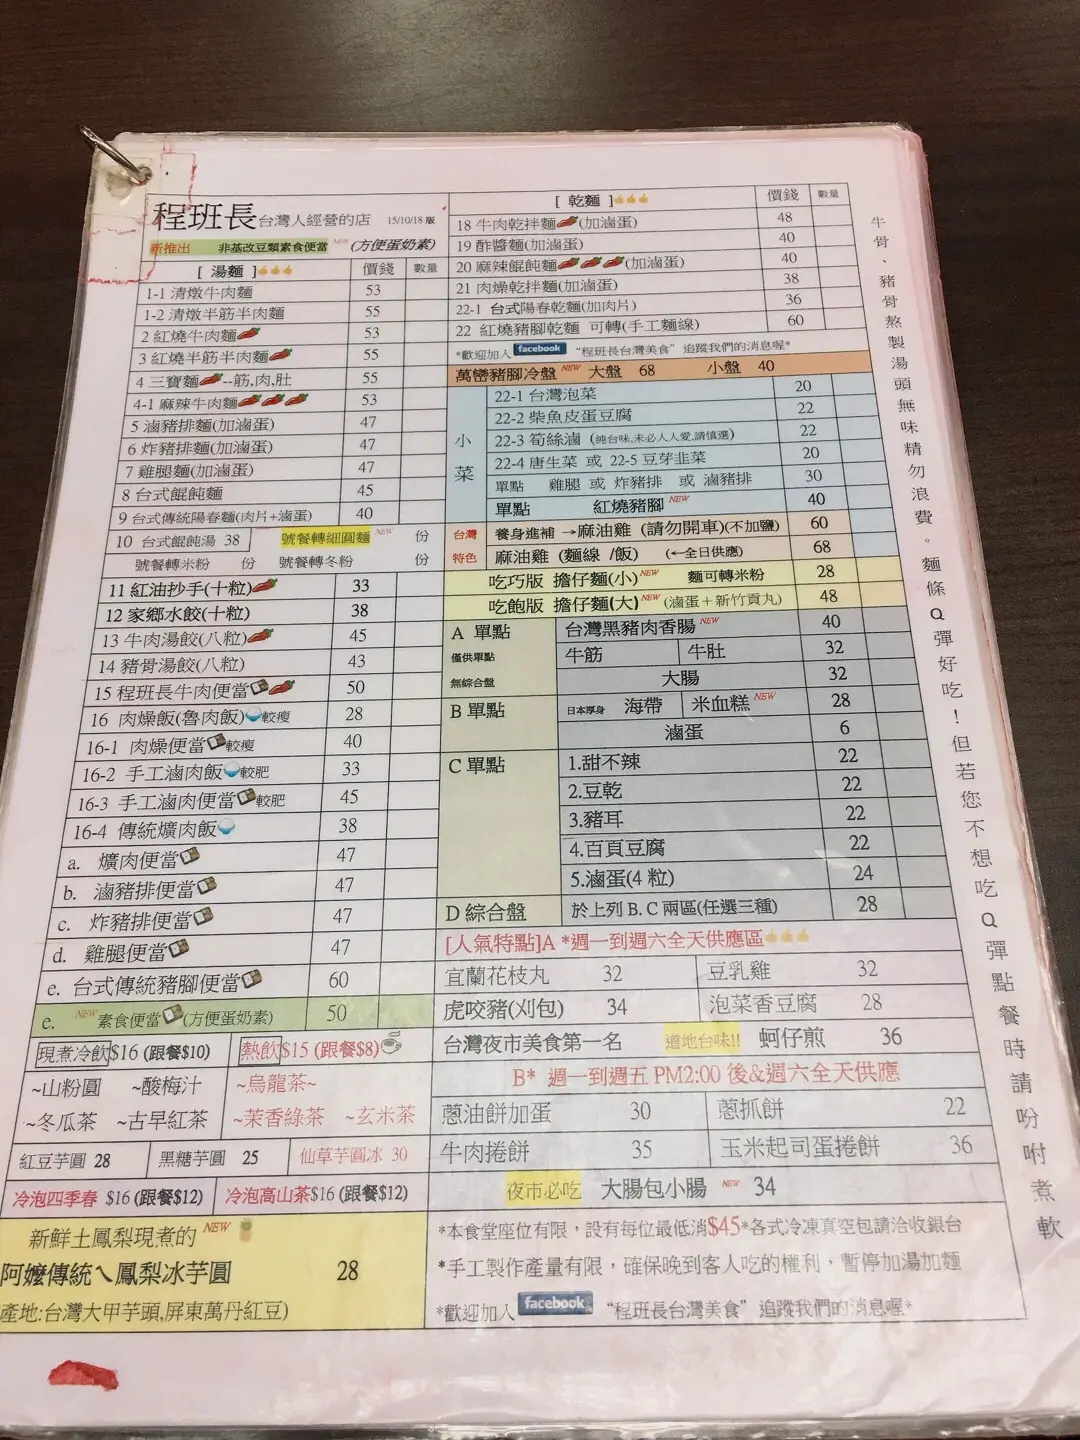 程班長台灣人經營的店 15/10/18 版
新推出 非基改豆類素食便當 NEW (方便蛋奶素)
[ 湯麵 ] 價錢 數量
1-1 清燉牛肉麵 53
1-2 清燉半筋半肉麵 55
2 紅燒牛肉麵 53
3 紅燒半筋半肉麵 55
4 三寶麵--筋,肉,肚 55
4-1 麻辣牛肉麵 53
5 滷豬排麵(加滷蛋) 47
6 炸豬排麵(加滷蛋) 47
7 雞腿麵(加滷蛋) 47
8 台式餛飩麵 45
9 台式傳統陽春麵(肉片+滷蛋) 40
10 台式餛飩湯 38 號餐轉細圓麵 NEW 份
號餐轉米粉 份 號餐轉冬粉 份
11 紅油抄手(十粒) 33
12 家鄉水餃(十粒) 38
13 牛肉湯餃(八粒) 45
14 豬骨湯餃(八粒) 43
15 程班長牛肉便當 50
16 肉燥飯(魯肉飯)較瘦 28
16-1 肉燥便當較瘦 40
16-2 手工滷肉飯較肥 33
16-3 手工滷肉便當較肥 45
16-4 傳統爌肉飯 38
a. 爌肉便當 47
b. 滷豬排便當 47
c. 炸豬排便當 47
d. 雞腿便當 47
e. 台式傳統豬腳便當 60
e. NEW 素食便當(方便蛋奶素) 50
現煮冷飲$16 (跟餐$10) 熱飲$15 (跟餐$8)
~山粉圓 ~酸梅汁 ~烏龍茶~
~冬瓜茶 ~古早紅茶 ~茉香綠茶 ~玄米茶
紅豆芋圓 28 黑糖芋圓 25 仙草芋圓冰 30
冷泡四季春 $16 (跟餐$12) 冷泡高山茶$16 (跟餐$12)
新鮮土鳳梨現煮的 NEW
阿嬤傳統ㄟ鳳梨冰芋圓 28
產地:台灣大甲芋頭,屏東萬丹紅豆)
[ 乾麵 ] 價錢 數量
18 牛肉乾拌麵(加滷蛋) 48
19 酢醬麵(加滷蛋) 40
20 麻辣餛飩麵(加滷蛋) 40
21 肉燥乾拌麵(加滷蛋) 38
22-1 台式陽春乾麵(加肉片) 36
22 紅燒豬腳乾麵 可轉(手工麵線) 60
*歡迎加入 facebook “程班長台灣美食” 追蹤我們的消息喔*
萬巒豬腳冷盤 NEW 大盤 68 小盤 40
小菜
22-1 台灣泡菜 20
22-2 柴魚皮蛋豆腐 22
22-3 筍絲滷 (純台味,未必人人愛,請慎選) 22
22-4 唐生菜 或 22-5 豆芽韭菜 20
單點 雞腿 或 炸豬排 或 滷豬排 30
單點 紅燒豬腳 NEW 40
台灣特色
養身進補 →麻油雞 (請勿開車)(不加鹽) 60
麻油雞 (麵線 /飯) (←全日供應) 68
吃巧版 擔仔麵(小) NEW 麵可轉米粉 28
吃飽版 擔仔麵(大) NEW (滷蛋+新竹貢丸) 48
A 單點 台灣黑豬肉香腸 NEW 40
僅供單點 牛筋 牛肚 32
無綜合盤 大腸 32
B 單點 日本厚身 海帶 米血糕 NEW 28
滷蛋 6
C 單點 1.甜不辣 22
2.豆乾 22
3.豬耳 22
4.百頁豆腐 22
5.滷蛋(4 粒) 24
D 綜合盤 於上列 B. C 兩區(任選三種) 28
[人氣特點]A *週一到週六全天供應區
宜蘭花枝丸 32 豆乳雞 32
虎咬豬(刈包) 34 泡菜香豆腐 28
台灣夜市美食第一名 道地台味!! 蚵仔煎 36
B* 週一到週五 PM2:00 後&週六全天供應
蔥油餅加蛋 30 蔥抓餅 22
牛肉捲餅 35 玉米起司蛋捲餅 36
夜市必吃 大腸包小腸 NEW 34
*本食堂座位有限，設有每位最低消$45*各式冷凍真空包請洽收銀台
*手工製作產量有限，確保晚到客人吃的權利，暫停加湯加麵
*歡迎加入 facebook “程班長台灣美食” 追蹤我們的消息喔*
牛骨、豬骨熬製湯頭無味精勿浪費。麵條Q彈好吃！但若您不想吃Q彈點餐時請吩咐煮軟